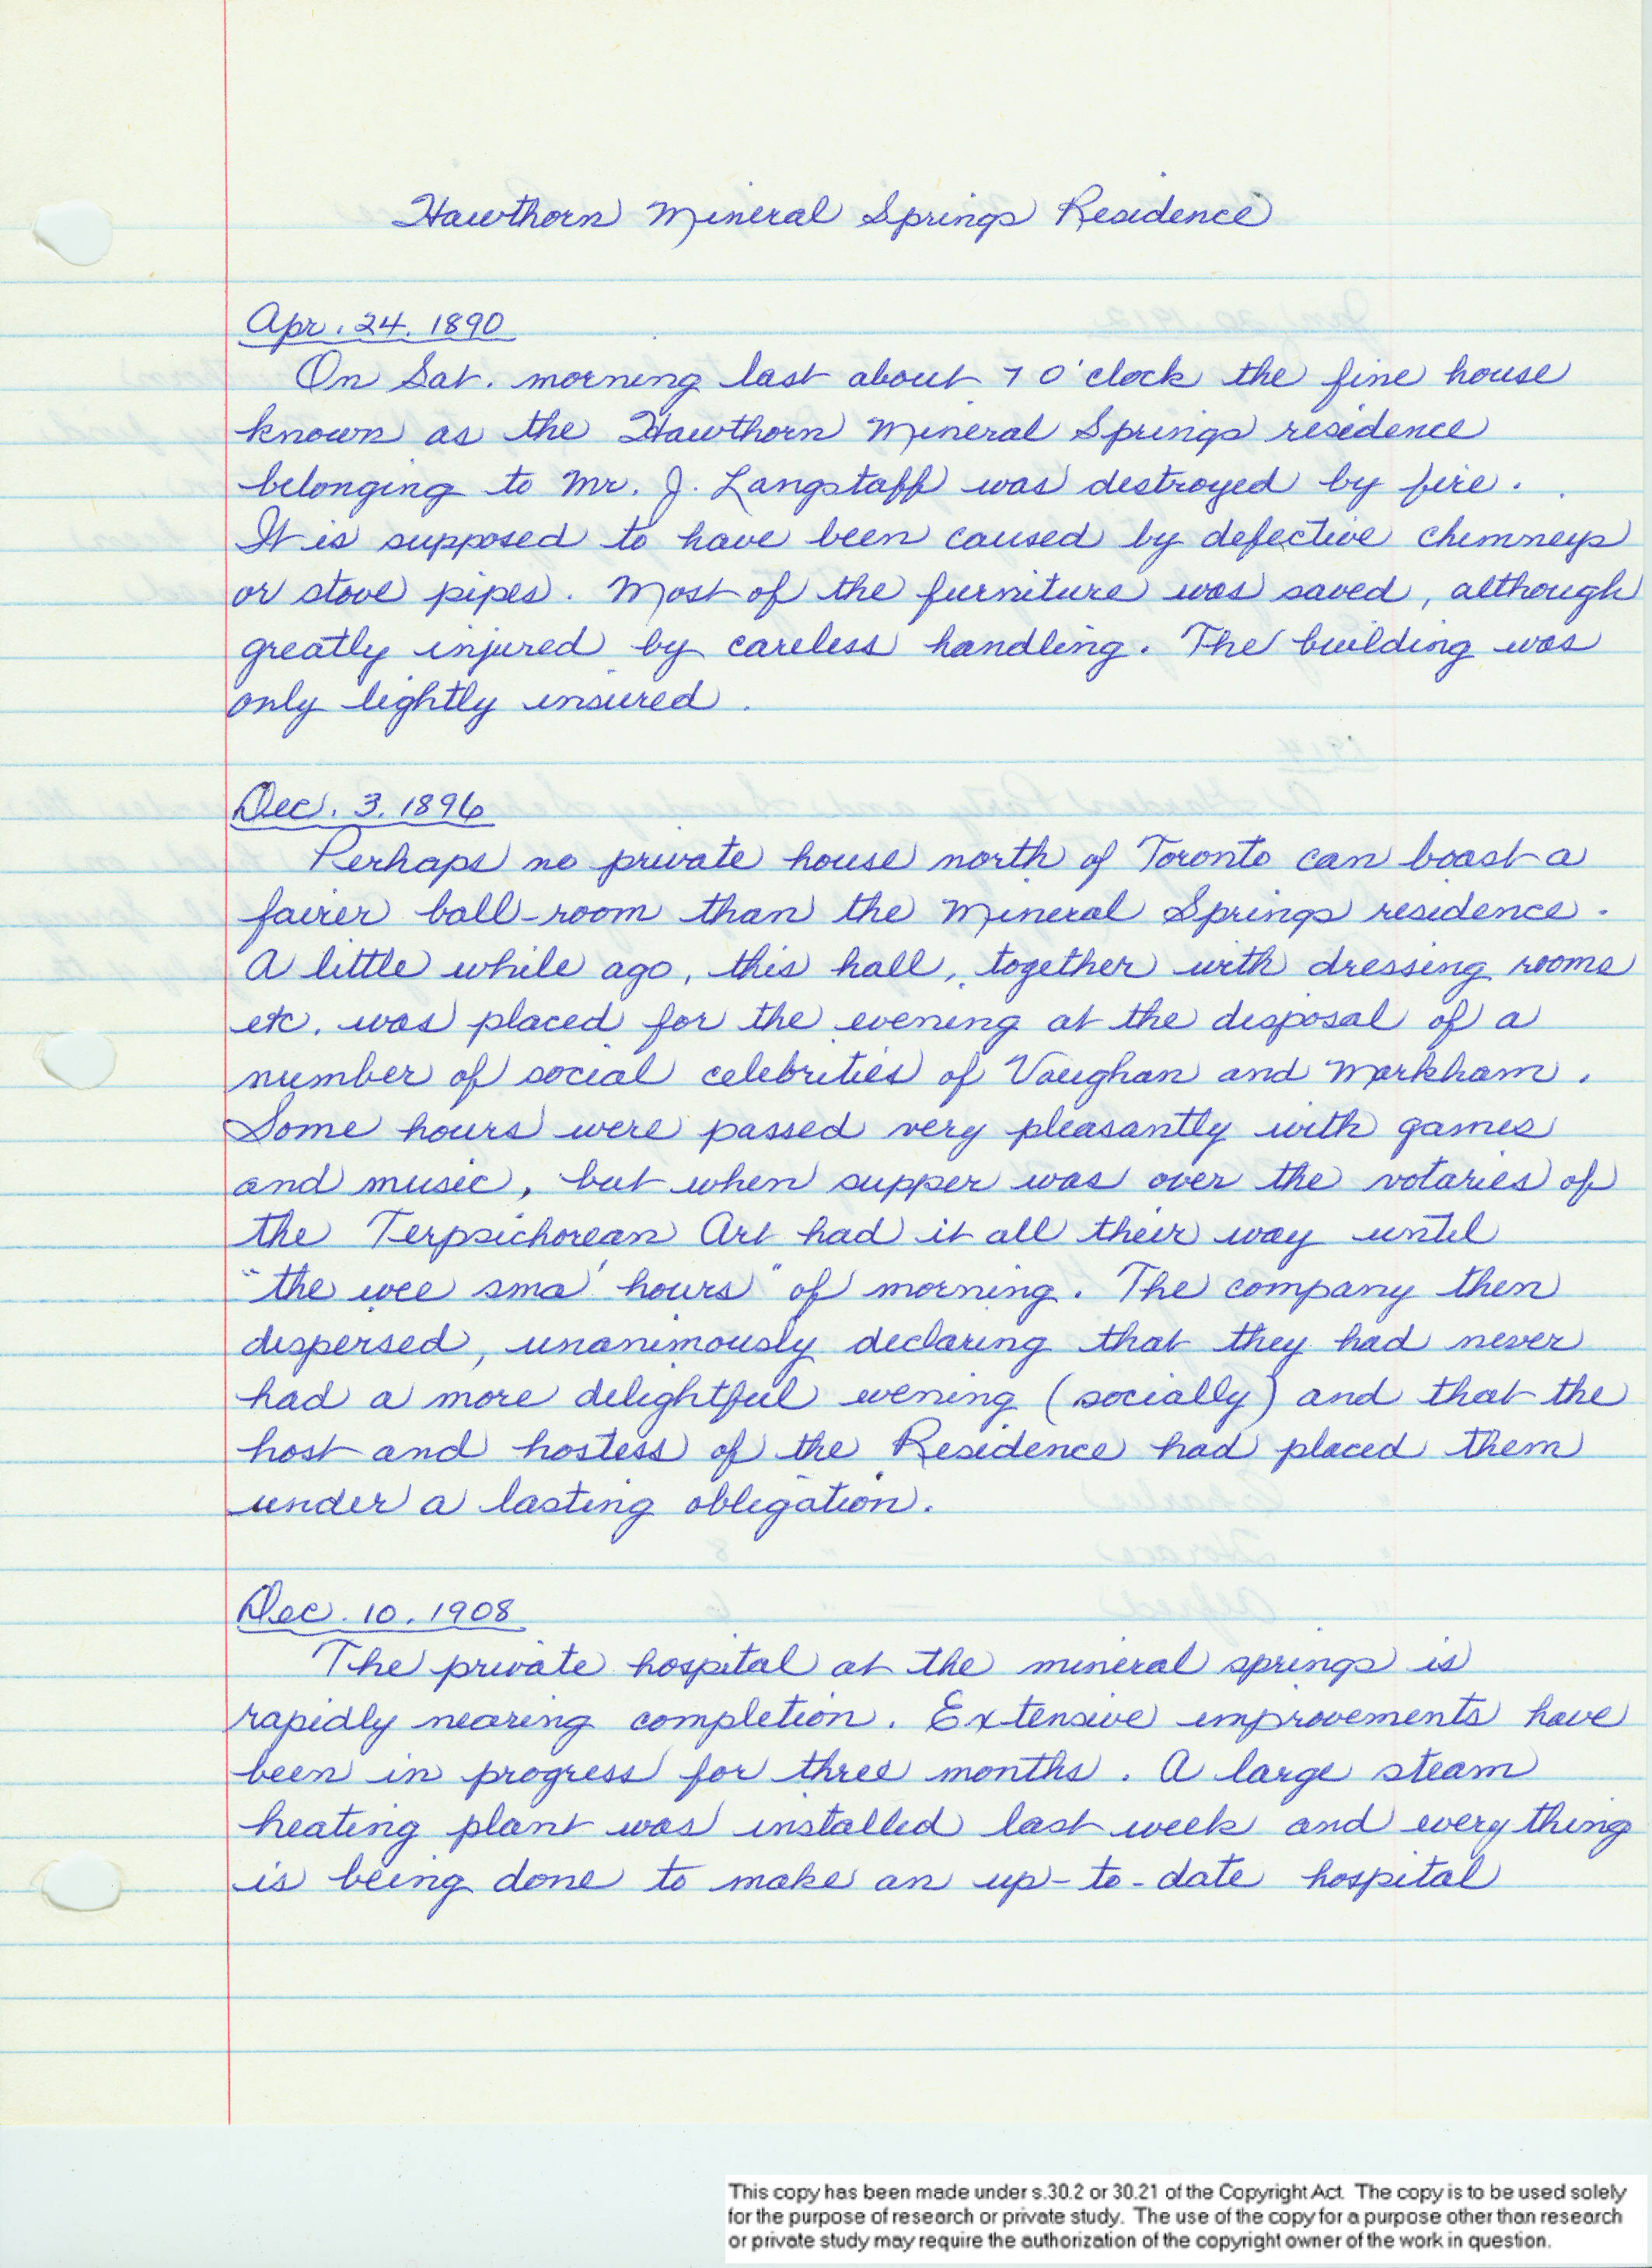 Hawthorn Mineral Springs Residence
Apr. 24. 1890
On Sat. morning last about 7 o'clock the fine house
known as the Hawthorn Mineral Springs residence
belonging to Mr. J. Langstaff was destroyed by fire.
It is supposed to have been caused by defective chimneys
or stove pipes. Most of the furniture was saved, although
greatly injured by careless handling. The building was
only lightly insured.
Dec. 3. 1896
Perhaps no private house north of Toronto can boast a
fairer ball-room than the Mineral Springs residence.
A little while ago, this hall, together with dressing rooms
etc. was placed for the evening at the disposal of a
number of social celebrities of Vaughan and Markham.
Some hours were passed very pleasantly with games
and music, but when supper was over the votaries of
the Terpsichorean Art had it all their way until
"the wee sma' hours" of morning. The company then
dispersed, unanimously declaring that they had never
had a more delightful evening (socially) and that the
host and hostess of the Residence had placed them
under a lasting obligation.
Dec. 10. 1908
The private hospital at the mineral springs is
rapidly nearing completion. Extensive improvements have
been in progress for three months. A large steam
heating plant was installed last week and every thing
is being done to make an up-to-date hospital
This copy has been made under s.30.2 or 30.21 of the Copyright Act. The copy is to be used solely
for the purpose of research or private study. The use of the copy for a purpose other than research
or private study may require the authorization of the copyright owner of the work in question.